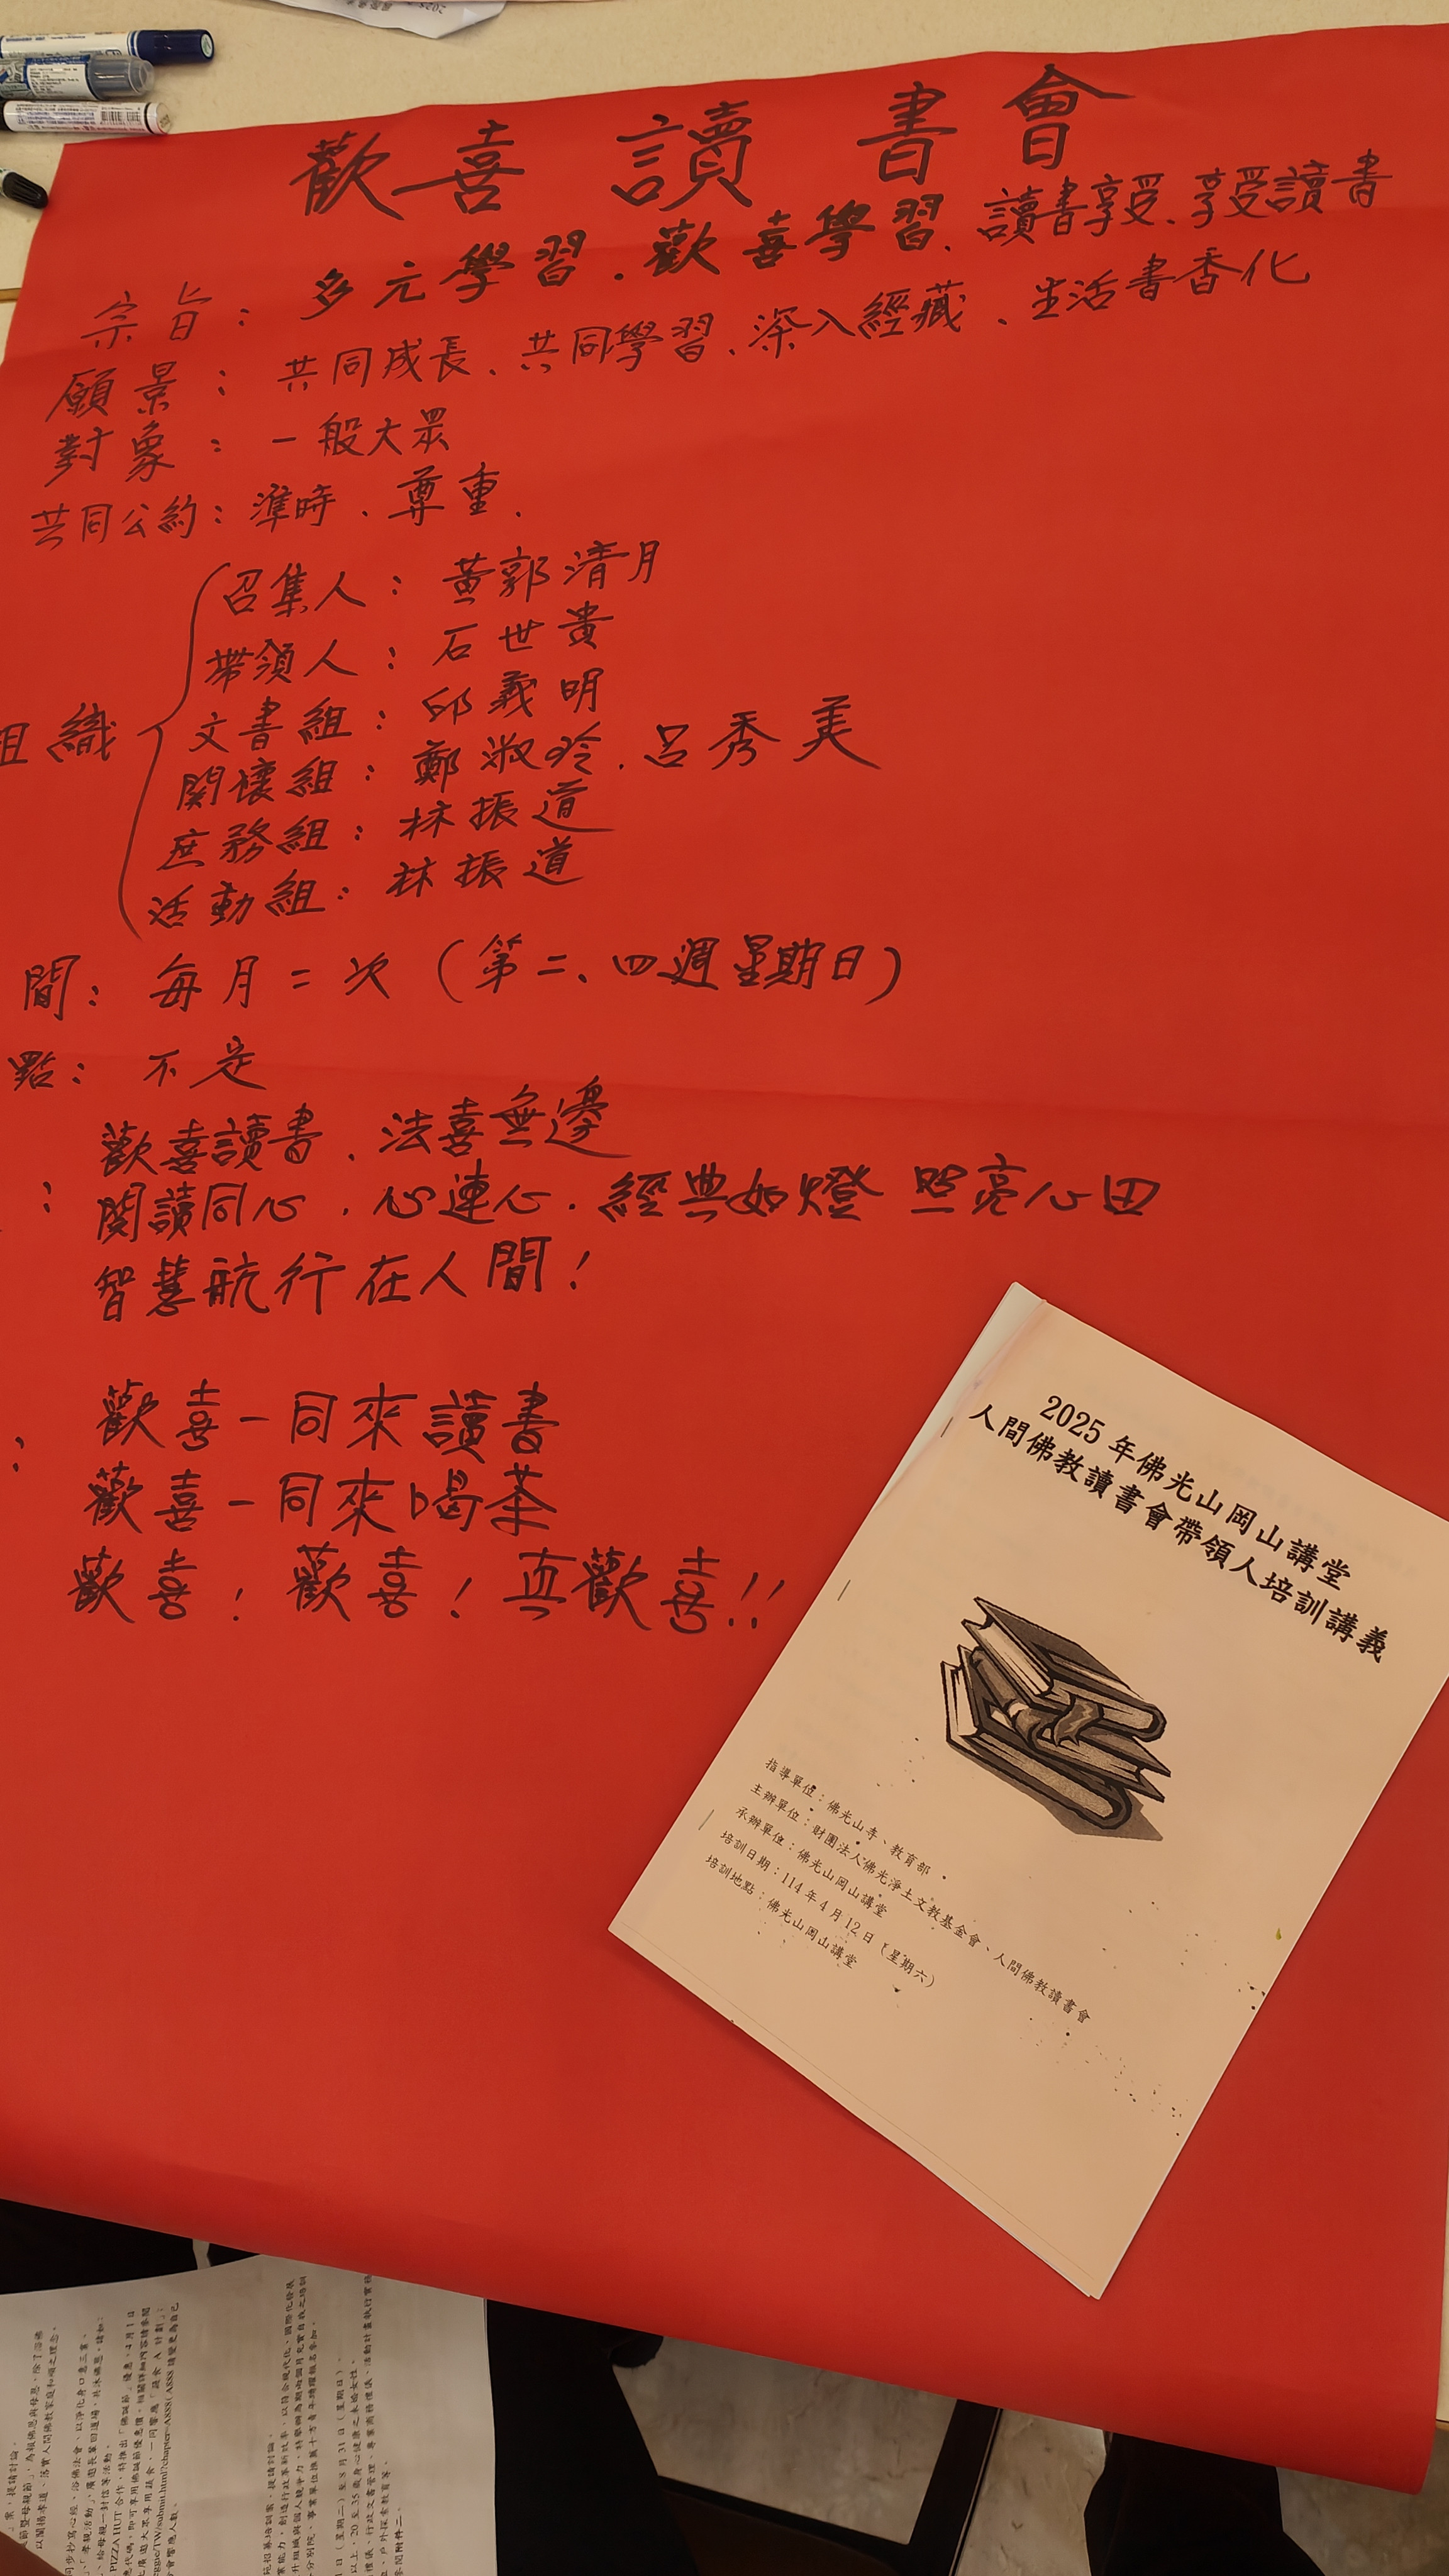 歡喜讀書會
宗旨：多元學習．歡喜學習、讀書享受、享受讀書
願景：共同成長、共同學習、深入經藏、生活書香化
對象：一般大眾
共同公約：準時、尊重、
組織
召集人：黃郭清月
帶領人：石世貴
文書組：邱義明
關懷組：鄭淑玲．呂秀美
庶務組：林振道
活動組：林振道
間：每月二次（第二、四週星期日）
點：不定
歡喜讀書、法喜無邊
：閱讀同心．心連心．經典如燈 照亮心田
智慧航行在人間！
：歡喜一同來讀書
歡喜一同來喝茶
歡喜！歡喜！真歡喜！！
2025 年佛光山岡山講堂
人間佛教讀書會帶領人培訓講義
指導單位：佛光山寺、教育部
主辦單位：財團法人佛光淨土文教基金會、人間佛教讀書會
承辦單位：佛光山岡山講堂
培訓日期：114 年 4 月 12 日（星期六）
培訓地點：佛光山岡山講堂